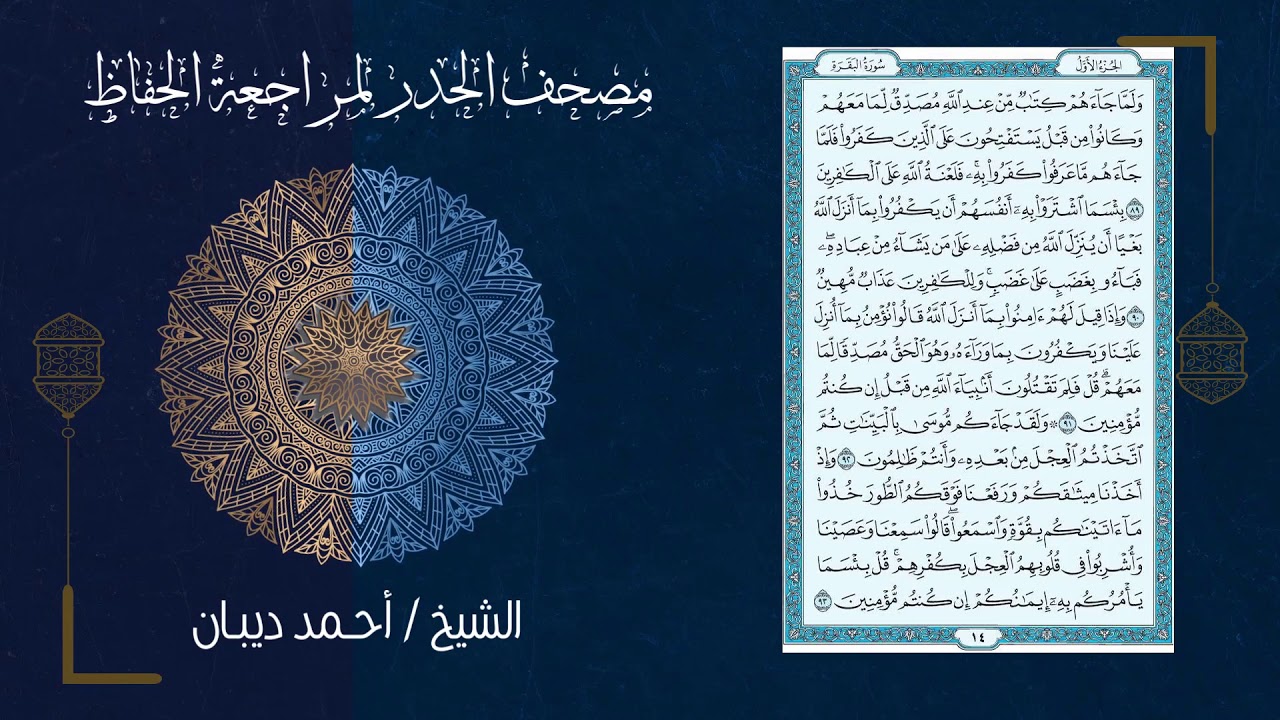 مصحف الحدر لمراجعة الحفاظ
الشيخ / أحمد ديبان
الجزء الأول
سورة البقرة
وَلَمَّا جَآءَهُمْ كِتَٰبٌ مِّنْ عِندِ ٱللَّهِ مُصَدِّقٌ لِّمَا مَعَهُمْ
وَكَانُوا۟ مِن قَبْلُ يَسْتَفْتِحُونَ عَلَى ٱلَّذِينَ كَفَرُوا۟ فَلَمَّا
جَآءَهُم مَّا عَرَفُوا۟ كَفَرُوا۟ بِهِۦۚ فَلَعْنَةُ ٱللَّهِ عَلَى ٱلْكَٰفِرِينَ
٨٩ بِئْسَمَا ٱشْتَرَوْا۟ بِهِۦٓ أَنفُسَهُمْ أَن يَكْفُرُوا۟ بِمَآ أَنزَلَ ٱللَّهُ
بَغْيًا أَن يُنَزِّلَ ٱللَّهُ مِن فَضْلِهِۦ عَلَىٰ مَن يَشَآءُ مِنْ عِبَادِهِۦۖ
فَبَآءُو بِغَضَبٍ عَلَىٰ غَضَبٍۚ وَلِلْكَٰفِرِينَ عَذَابٌ مُّهِينٌ
٩٠ وَإِذَا قِيلَ لَهُمْ ءَامِنُوا۟ بِمَآ أَنزَلَ ٱللَّهُ قَالُوا۟ نُؤْمِنُ بِمَآ أُنزِلَ
عَلَيْنَا وَيَكْفُرُونَ بِمَا وَرَآءَهُۥ وَهُوَ ٱلْحَقُّ مُصَدِّقًا لِّمَا
مَعَهُمْۗ قُلْ فَلِمَ تَقْتُلُونَ أَنۢبِيَآءَ ٱللَّهِ مِن قَبْلُ إِن كُنتُم
مُّؤْمِنِينَ ٩١ ۞ وَلَقَدْ جَآءَكُم مُّوسَىٰ بِٱلْبَيِّنَٰتِ ثُمَّ
ٱتَّخَذْتُمُ ٱلْعِجْلَ مِنۢ بَعْدِهِۦ وَأَنتُمْ ظَٰلِمُونَ ٩٢ وَإِذْ
أَخَذْنَا مِيثَٰقَكُمْ وَرَفَعْنَا فَوْقَكُمُ ٱلطُّورَ خُذُوا۟
مَآ ءَاتَيْنَٰكُم بِقُوَّةٍ وَٱسْمَعُوا۟ۖ قَالُوا۟ سَمِعْنَا وَعَصَيْنَا
وَأُشْرِبُوا۟ فِى قُلُوبِهِمُ ٱلْعِجْلَ بِكُفْرِهِمْۚ قُلْ بِئْسَمَا
يَأْمُرُكُم بِهِۦٓ إِيمَٰنُكُمْ إِن كُنتُم مُّؤْمِنِينَ ٩٣
١٤